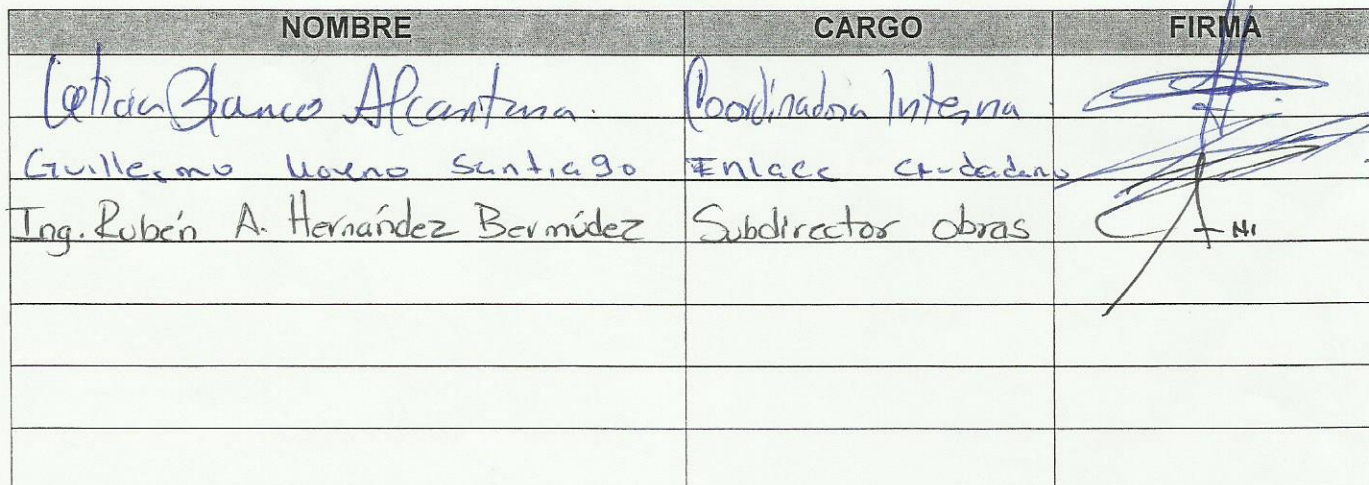 NOMBRE CARGO FIRMA
Leticia Blanco Alcantara. Coordinadora Interna
Guillermo Moreno Santiago Enlace ciudadano
Ing. Rubén A. Hernández Bermúdez Subdirector obras